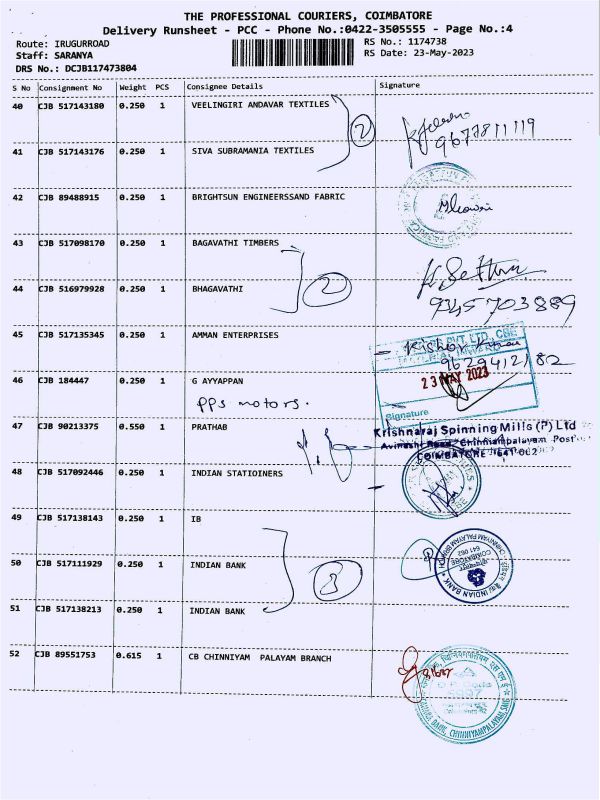 THE PROFESSIONAL COURIERS, COIMBATORE
Delivery Runsheet - PCC - Phone No.:0422-3505555 - Page No.:4
Route: IRUGURROAD
RS No.: 1174738
Staff: SARANYA
RS Date: 23-May-2023
DRS No.: DCJB117473804
S No Consignment No Weight PCS Consignee Details Signature
40 CJB 517143180 0.250 1 VEELINGIRI ANDAVAR TEXTILES
2
9677811119
41 CJB 517143176 0.250 1 SIVA SUBRAMANIA TEXTILES
42 CJB 89488915 0.250 1 BRIGHTSUN ENGINEERSSAND FABRIC
43 CJB 517098170 0.250 1 BAGAVATHI TIMBERS
44 CJB 516979928 0.250 1 BHAGAVATHI
2
9345703889
45 CJB 517135345 0.250 1 AMMAN ENTERPRISES
PVT LTD, CBE
9629412182
46 CJB 184447 0.250 1 G AYYAPPAN
23 MAY 2023
PPS motors.
Signature
47 CJB 90213375 0.550 1 PRATHAB
Krishnaraj Spinning Mills (P) Ltd
Avinashi Road, Chinniampalayam Post
COIMBATORE 641 062
48 CJB 517092446 0.250 1 INDIAN STATIOINERS
49 CJB 517138143 0.250 1 IB
50 CJB 517111929 0.250 1 INDIAN BANK
3
INDIAN BANK
CHINNIYAM PALAYAM BRANCH
COIMBATORE
641 062
51 CJB 517138213 0.250 1 INDIAN BANK
52 CJB 89551753 0.615 1 CB CHINNIYAM PALAYAM BRANCH
BANK, CHINNIYAMPALAYAM